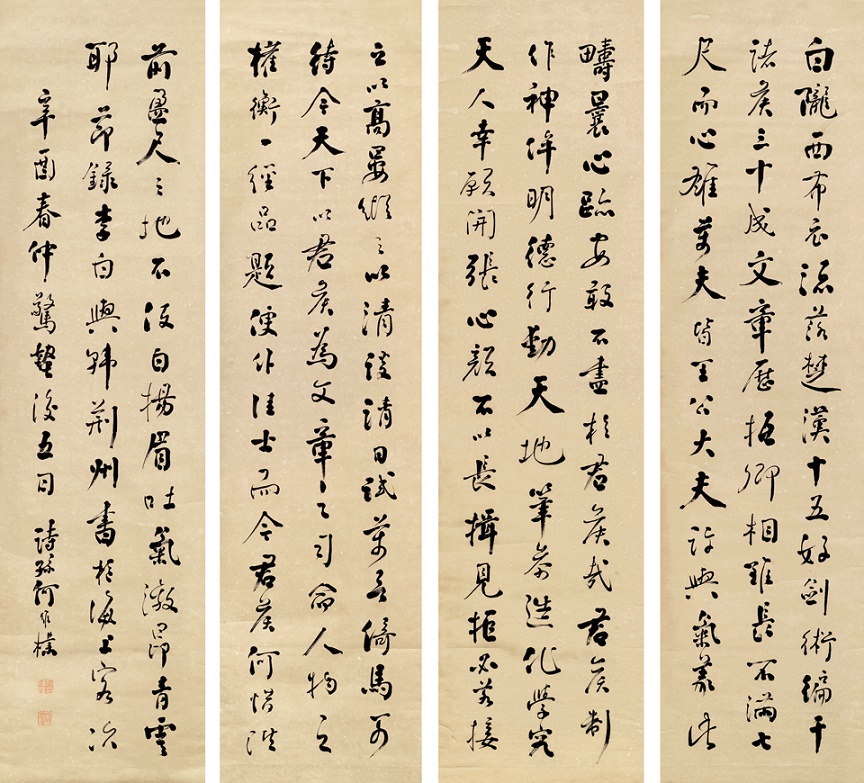 白隴西布衣流落楚漢十五好劍術徧干
諸侯三十成文章歷抵卿相雖長不滿七
尺而心雄萬夫皆王公大夫許與氣義此
疇曩心跡安敢不盡於君侯哉君侯制
作神侔明德行動天地筆參造化學究
天人幸願開張心顏不以長揖見拒必若接
之以高晏縱之以清談請日試萬言倚馬可
待今天下以君侯為文章之司命人物之
權衡一經品題便作佳士而今君侯何惜階
前盈尺之地不使白揚眉吐氣激昂青雲
耶節錄李白與韓荊州書於海上客次
辛酉春仲驚蟄後五日 詩孫何維樸